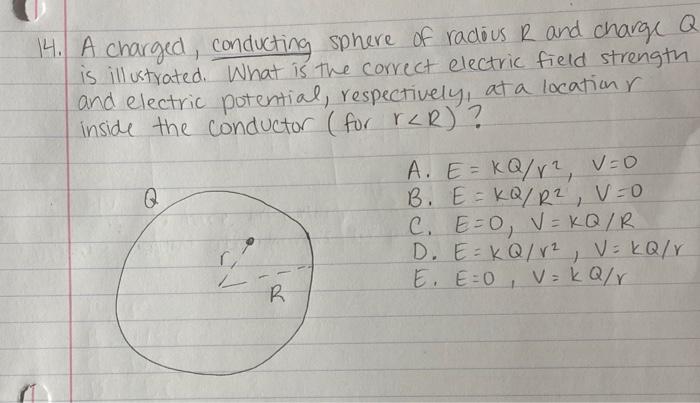 14. A charged, conducting sphere of radius R and charge Q
is illustrated. What is the correct electric field strength
and electric potential, respectively, at a location r
inside the conductor (for r<R)?
A. E = KQ/r², V=0
B. E = KQ/R², V=0
C. E=0, V=KQ/R
D. E=KQ/r², V=KQ/r
E. E=0, V=KQ/r
Q
r
R